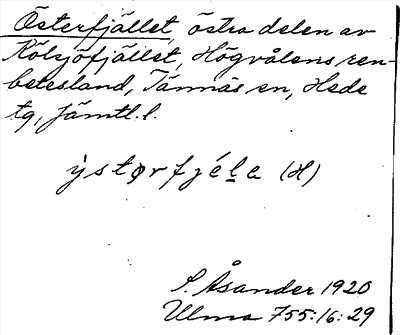 Österfjället, östra delen av
Kölsjöfjället, Högvålens ren-
betesland, Tännäs sn, Hede
tg, Jämtl. l.
ỳstørfjéḷa (H)
S. Åsander 1920
Ulma 755:16:29